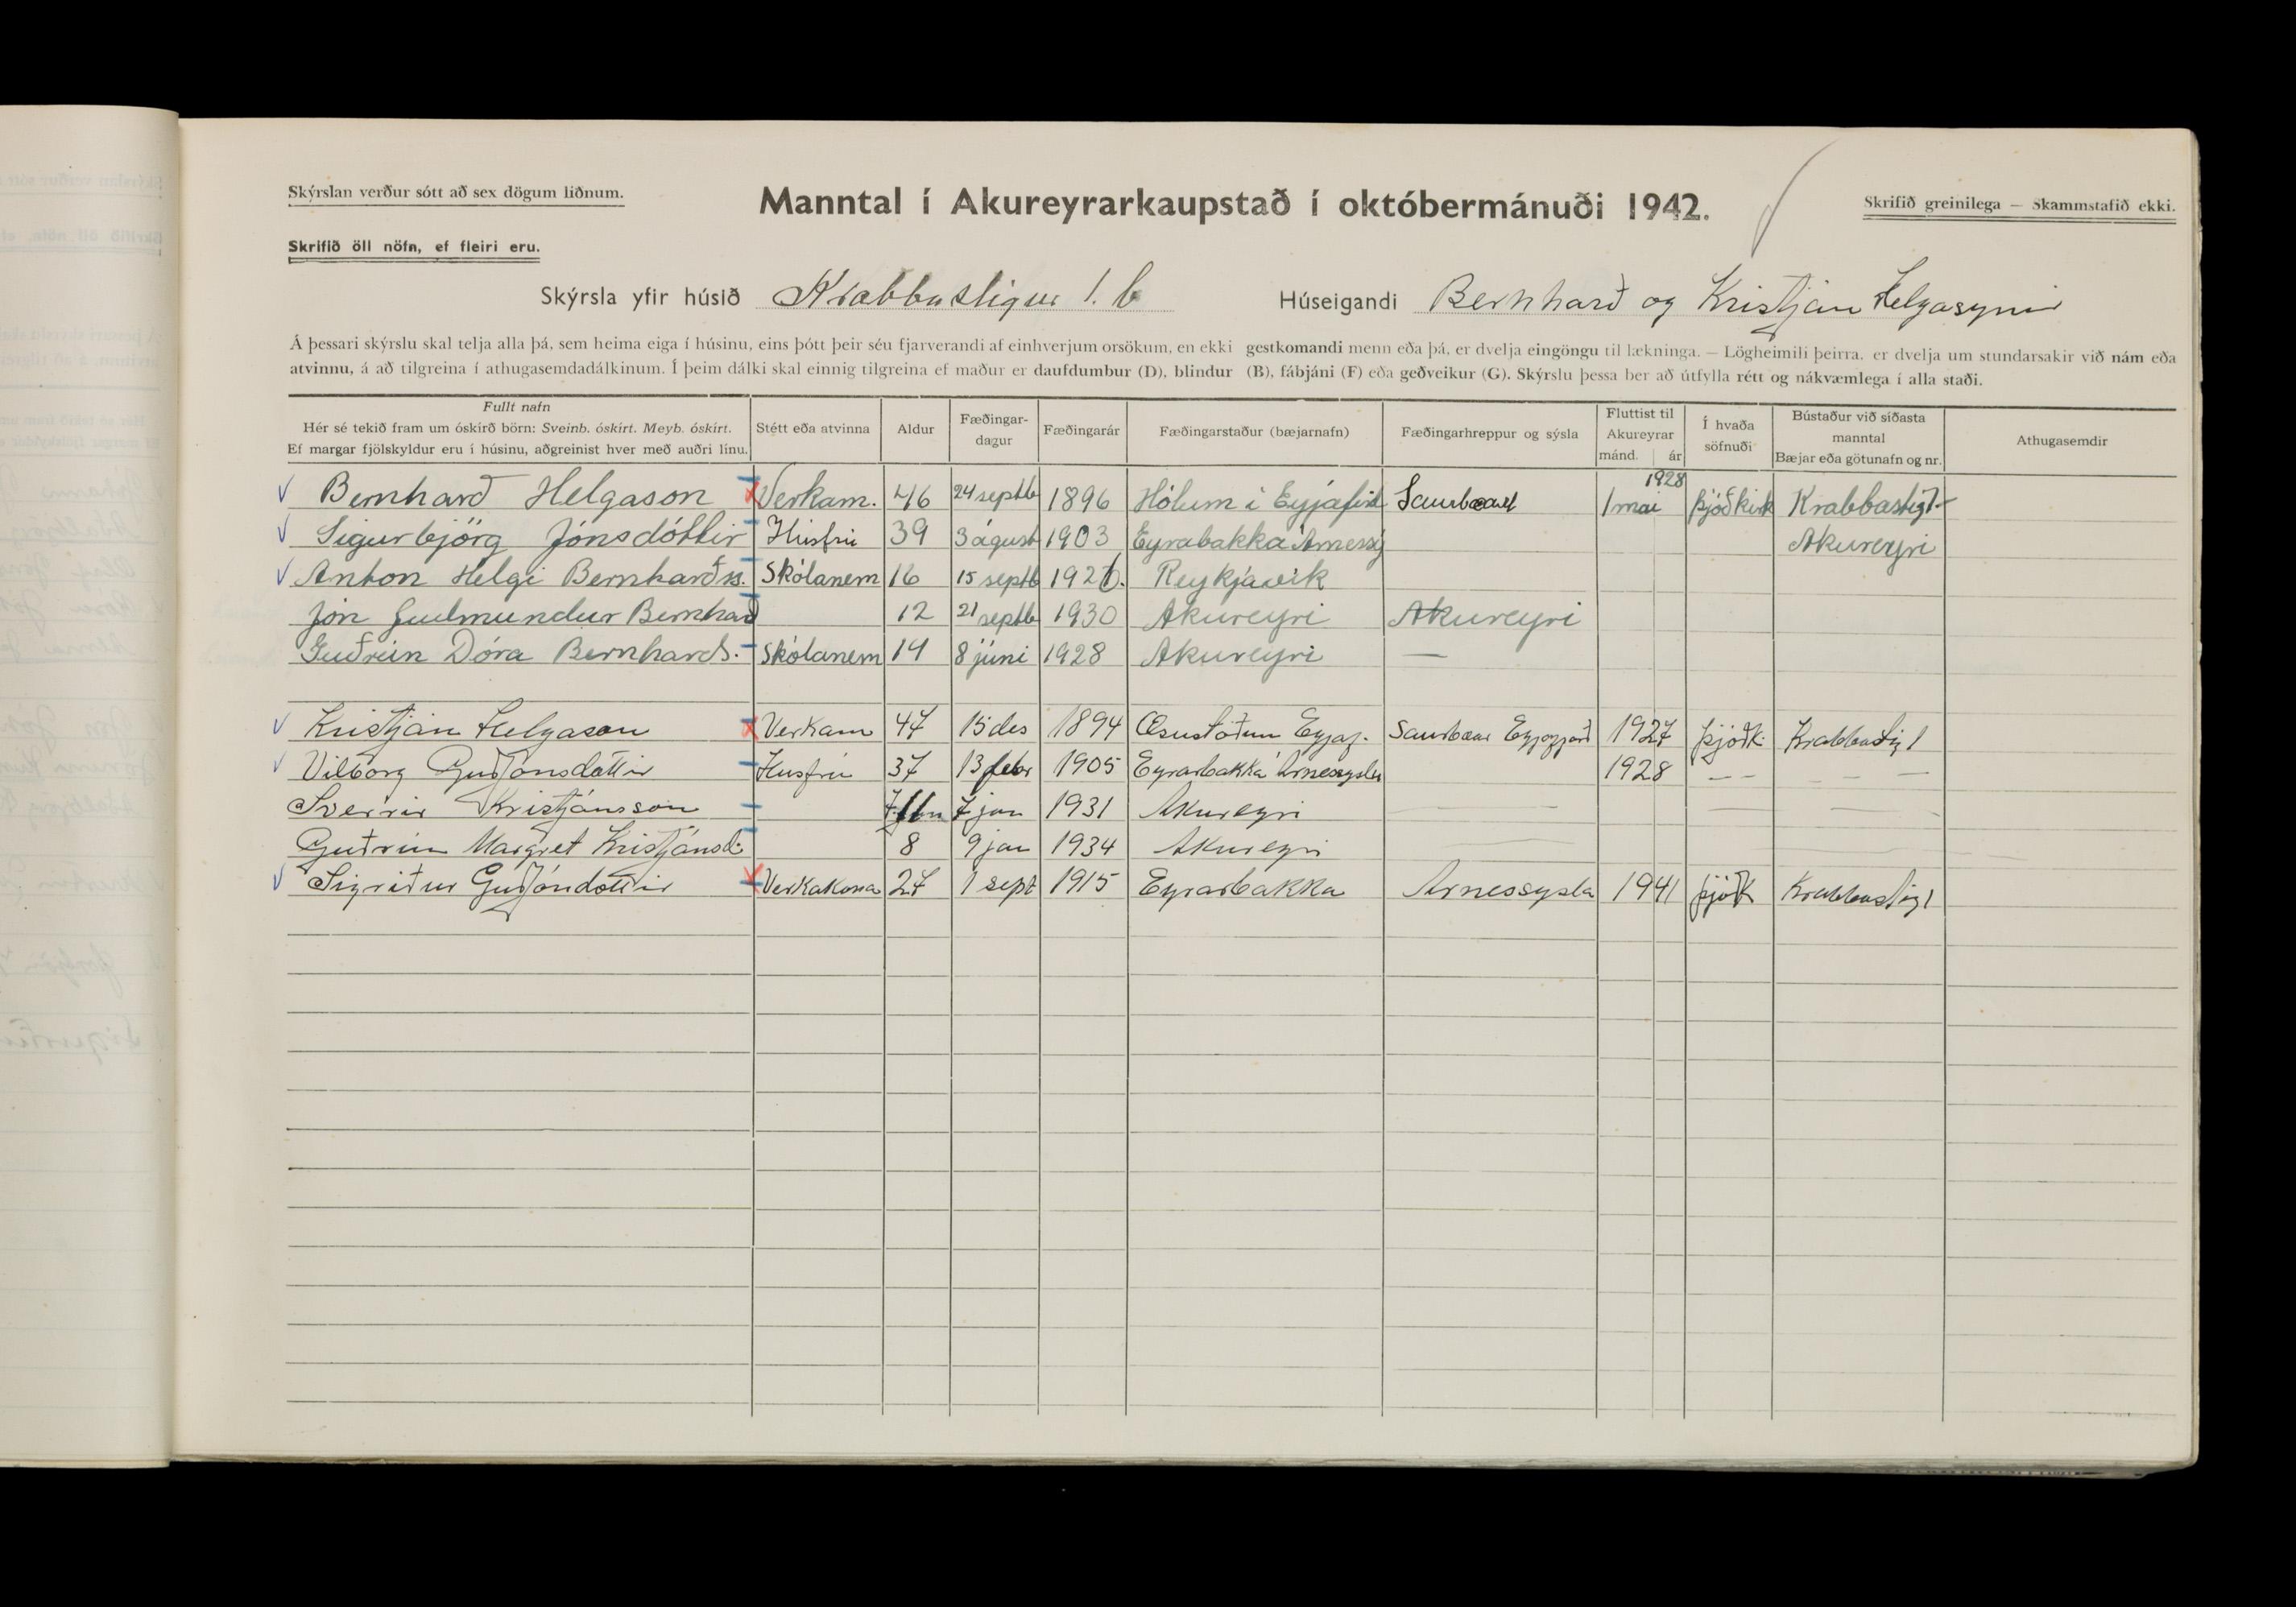 Skýrslan verður sótt að sex dögum liðnum.
Manntal í Akureyrarkaupstað í októbermánuði 1942.
Skrifið greinilega — Skammstafið ekki.
Skrifið öll nöfn, ef fleiri eru.
Skýrsla yfir húsið Krabbastigur 1. b Húseigandi Bernharð og Kristján Helgasynir
Á þessari skýrslu skal telja alla þá, sem heima eiga í húsinu, eins þótt þeir séu fjarverandi af einhverjum orsökum, en ekki gestkomandi menn eða þá, er dvelja eingöngu til lækninga. — Lögheimili þeirra, er dvelja um stundarsakir við nám eða
atvinnu, á að tilgreina í athugasemdadálkinum. Í þeim dálki skal einnig tilgreina ef maður er daufdumbur (D), blindur (B), fábjáni (F) eða geðveikur (G). Skýrslu þessa ber að útfylla rétt og nákvæmlega í alla staði.
Fullt nafn
Hér sé tekið fram um óskírð börn: Sveinb. óskírt. Meyb. óskírt.
Ef margar fjölskyldur eru í húsinu, aðgreinist hver með auðri línu.
Stétt eða atvinna
Aldur
Fæðingar-
dagur
Fæðingarár
Fæðingarstaður (bæjarnafn)
Fæðingarhreppur og sýsla
Fluttist til
Akureyrar
mánd. ár
Í hvaða
söfnuði
Bústaður við síðasta
manntal
Bæjar eða götunafn og nr.
Athugasemdir
Bernharð Helgason Verkam. 46 24 septb 1896 Hólum í Eyjafird Saurbæ 1 mai 1928 þjóðkirk Krabbastig 1
Sigurbjörg Jónsdóttir Húsfrú 39 3 ágúst 1903 Eyrabakka Árnessy Akureyri
Anton Helgi Bernharðss. Skólanem 16 15 septb 1926. Reykjavik
Jón Gudmundur Bernhard 12 21 septb 1930 Akureyri Akureyri
Guðrún Dóra Bernhards. Skólanem 14 8 júni 1928 Akureyri —
Kristján Helgason Verkam 47 15 des 1894 Æsustöðum Eyjaf. Saurbæar Eyjafjarð 1927 þjóðk. Krabbastig 1
Vilborg Guðjónsdóttir Húsfrú 37 13 febr 1905 Eyrarbakka Árnessyslu 1928 — — — — —
Sverrir Kristjánsson 7 jan 1931 Akureyri
Guðrún Margret Kristjánsd. 8 9 jan 1934 Akureyri
Sigriður Guðjónsdóttir Verkakona 27 1 sept 1915 Eyrarbakka Arnessysla 1941 þjóðk Krabbastig 1